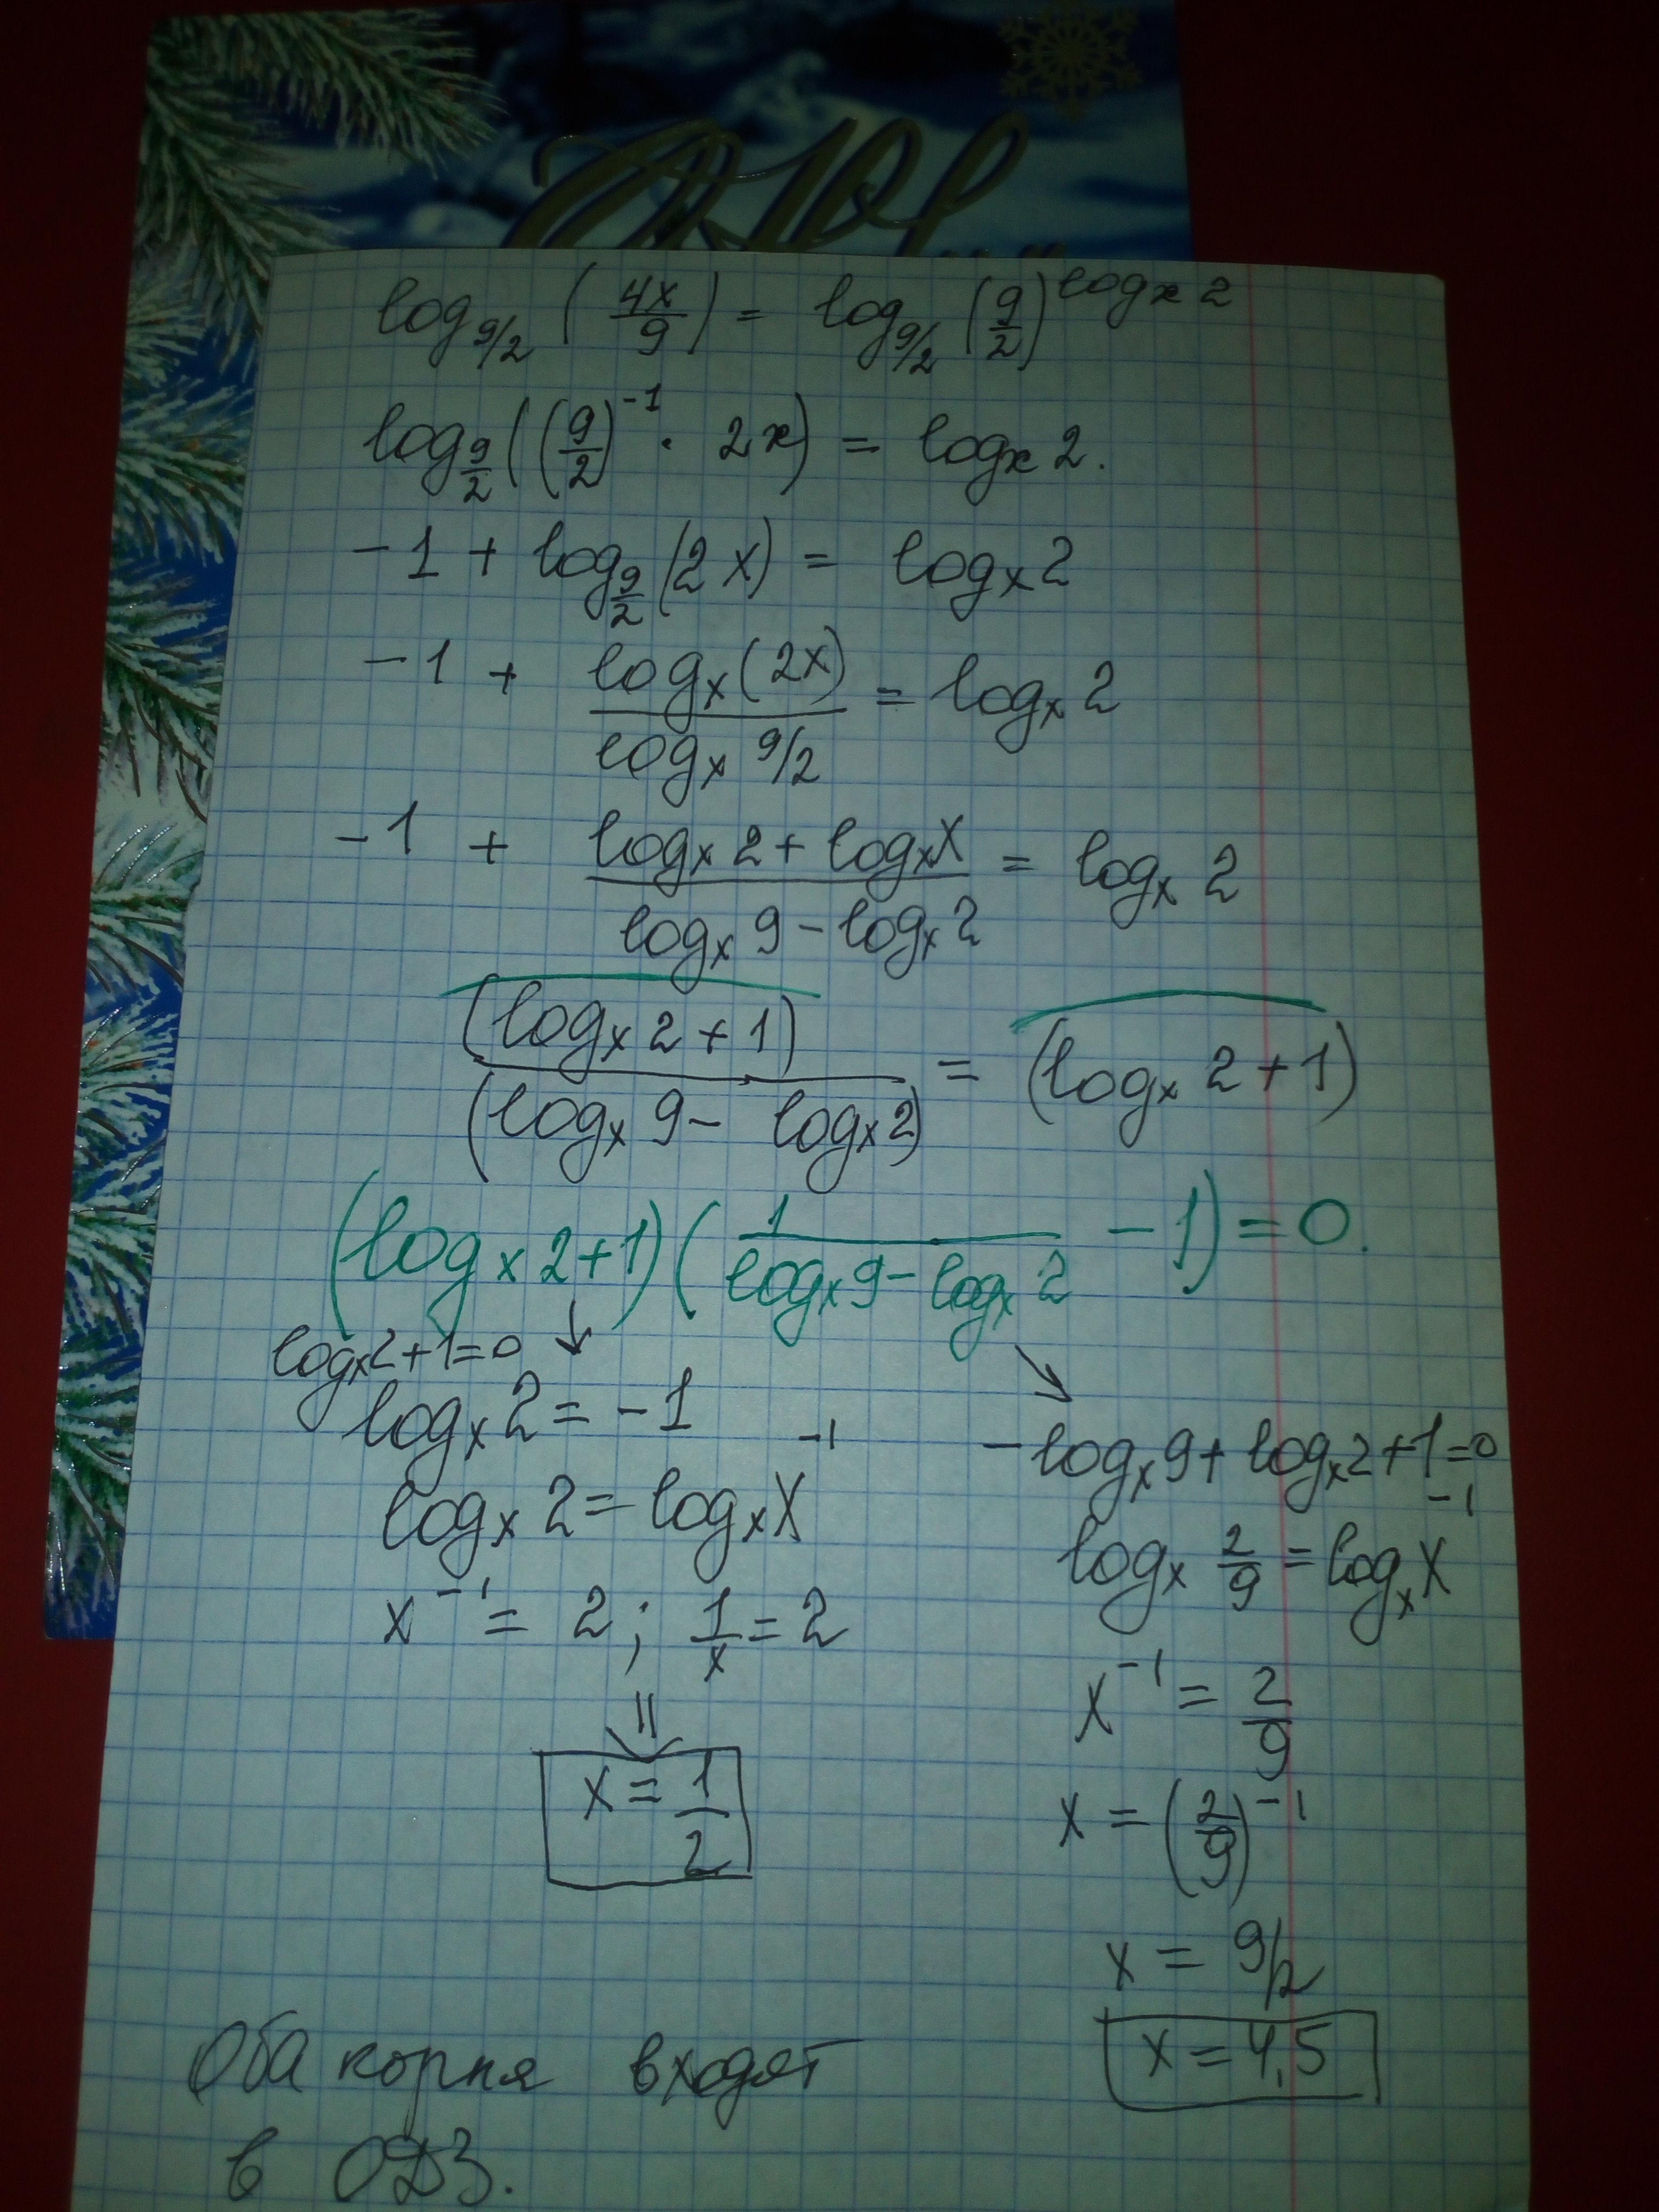 log_{9/2} (4x/9) = log_{9/2} (9/2)^{log_x 2}
log_{9/2} ((9/2)^{-1} · 2x) = log_x 2.
-1 + log_{9/2} (2x) = log_x 2
-1 + log_x (2x) / log_x 9/2 = log_x 2
-1 + (log_x 2 + log_x x) / (log_x 9 - log_x 2) = log_x 2
(log_x 2 + 1) / (log_x 9 - log_x 2) = (log_x 2 + 1)
(log_x 2 + 1) (1 / (log_x 9 - log_x 2) - 1) = 0.
log_x 2 + 1 = 0
log_x 2 = -1
log_x 2 = log_x x^{-1}
x^{-1} = 2; 1/x = 2
x = 1/2
-log_x 9 + log_x 2 + 1 = 0
log_x 2/9 = log_x x^{-1}
x^{-1} = 2/9
x = (2/9)^{-1}
x = 9/2
x = 4,5
Оба корня входят
в ОДЗ.